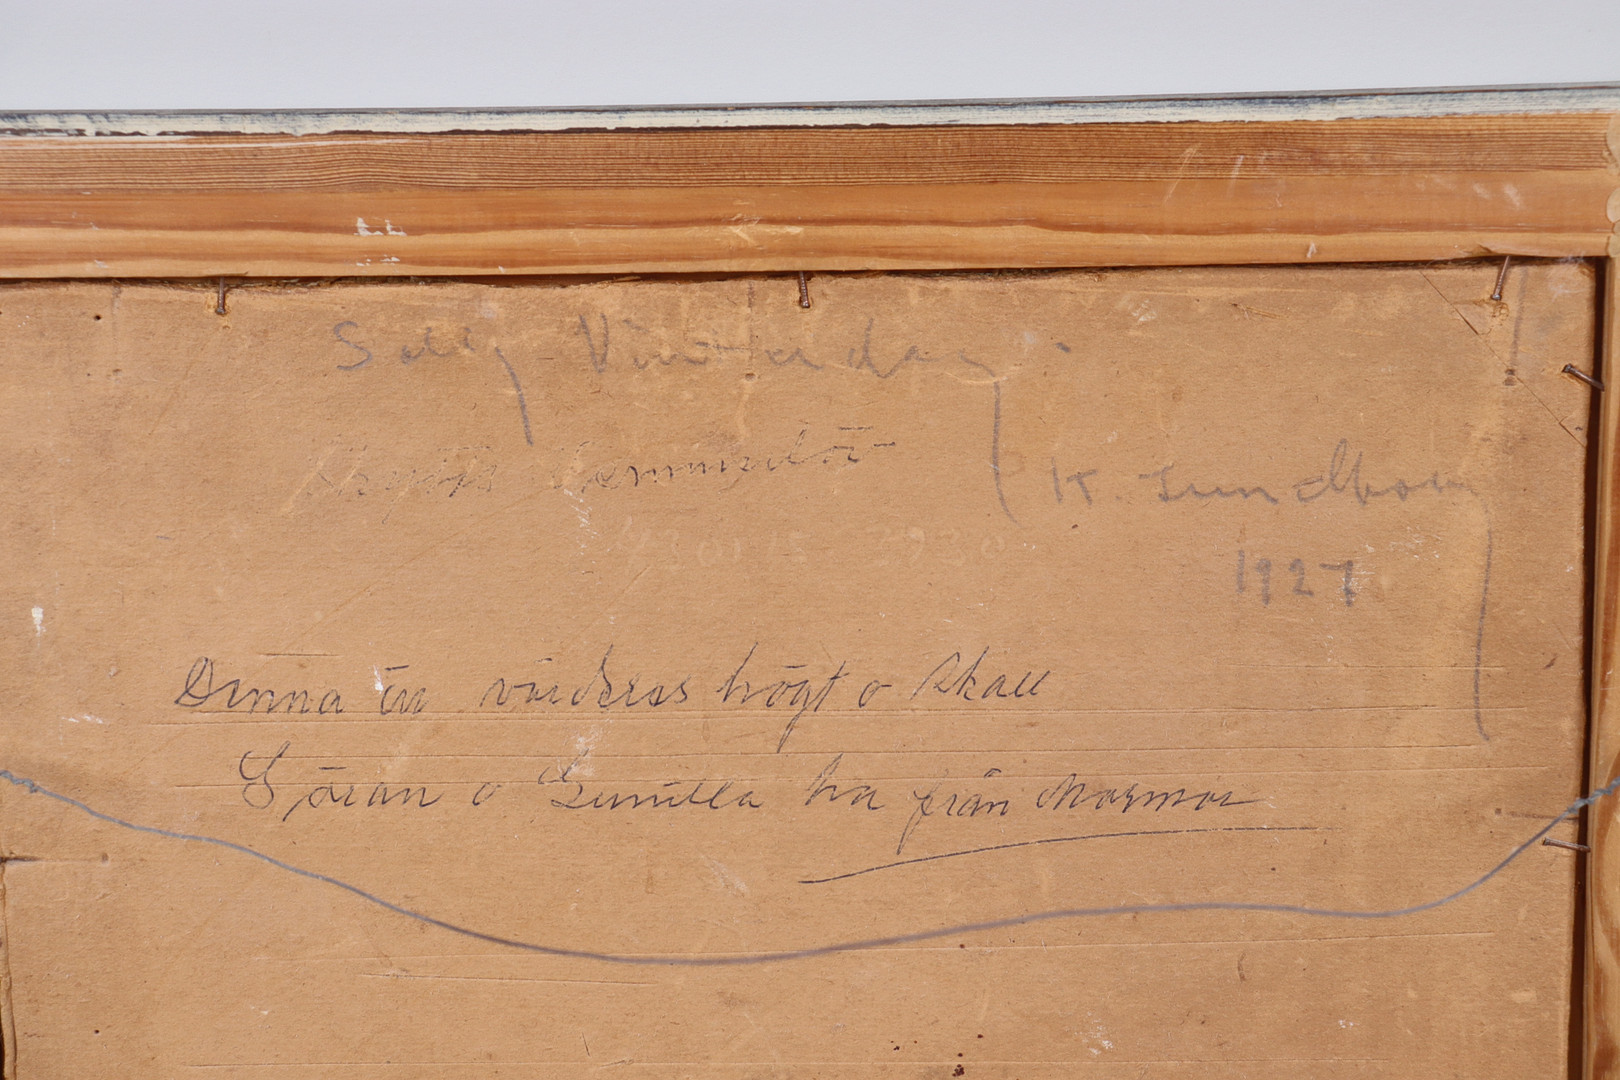 Solig Vinterdag.
K. Lundbom
1927
Denna är värderas högt o skall
Göran o Gunilla ha från Mormor